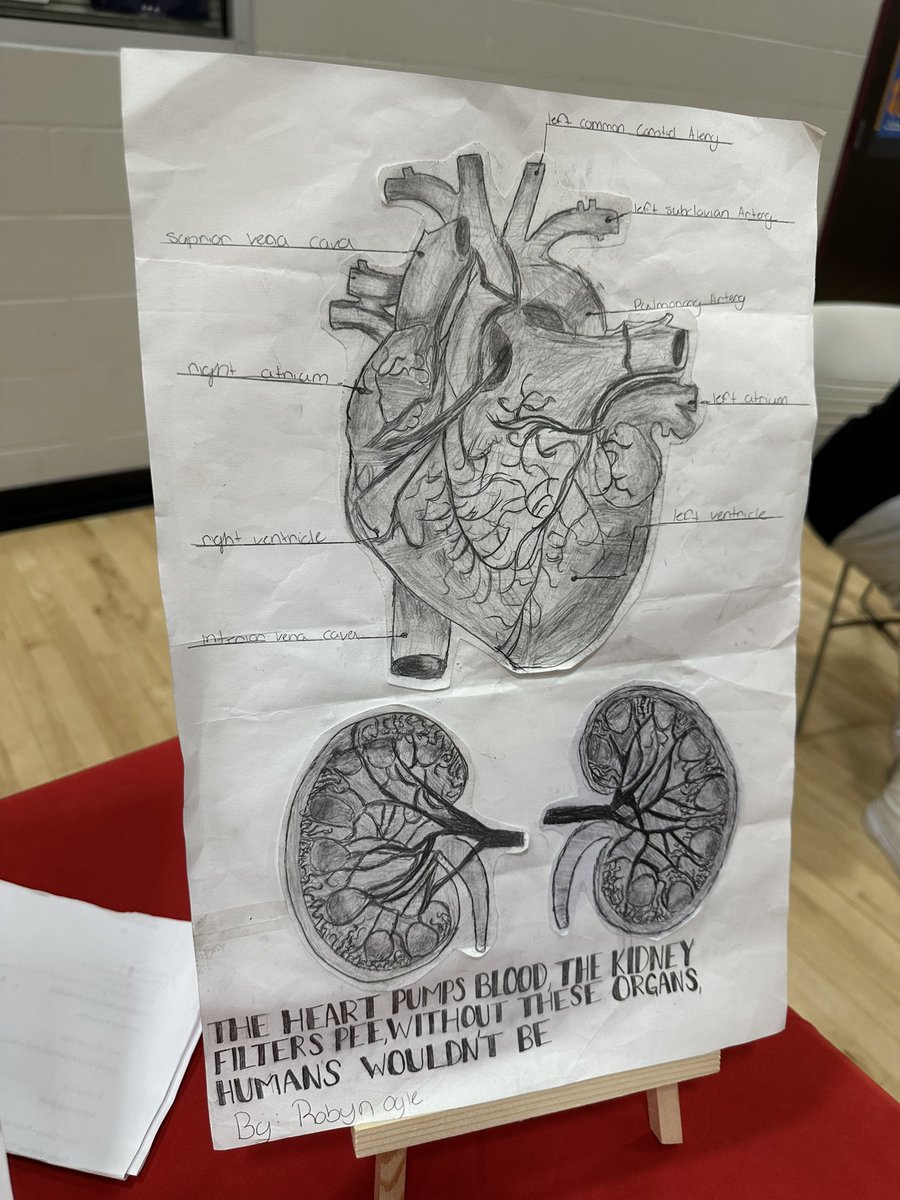 left common Carotid Atery
left subclavian Artery
suprior vena cava
Pulmonary Artery
right atrium
left atrium
left ventricle
right ventricle
interior vena cava
THE HEART PUMPS BLOOD, THE KIDNEY
FILTERS PEE, WITHOUT THESE ORGANS,
HUMANS WOULDN'T BE
By: Robyn Ogle